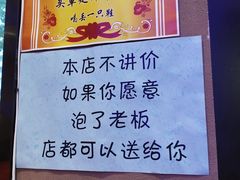 喝去一只鞋
本店不讲价
如果你愿意
泡了老板
店都可以送给你